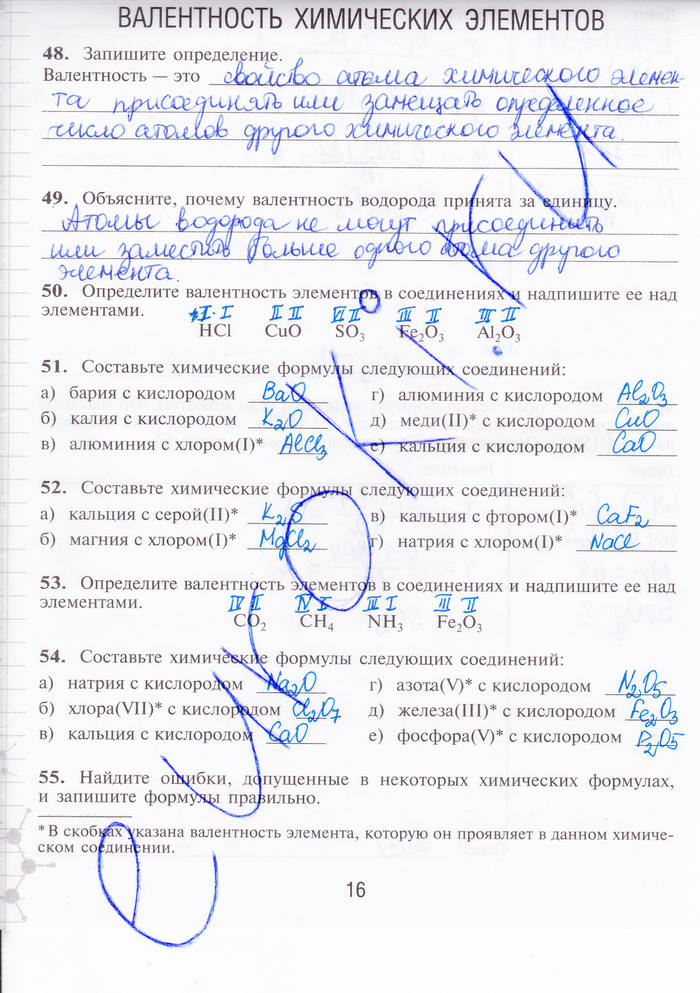 ВАЛЕНТНОСТЬ ХИМИЧЕСКИХ ЭЛЕМЕНТОВ
48. Запишите определение.
Валентность — это свойство атома химического элемен-
та присоединять или замещать определенное
число атомов другого химического элемента.
49. Объясните, почему валентность водорода принята за единицу.
Атомы водорода не могут присоединить
или заместить больше одного атома другого
элемента.
50. Определите валентность элементов в соединениях и надпишите ее над
элементами.
I I II II VI II III II III II
HCl CuO SO3 Fe2O3 Al2O3
51. Составьте химические формулы следующих соединений:
а) бария с кислородом BaO г) алюминия с кислородом Al2O3
б) калия с кислородом K2O д) меди(II)* с кислородом CuO
в) алюминия с хлором(I)* AlCl3 е) кальция с кислородом CaO
52. Составьте химические формулы следующих соединений:
а) кальция с серой(II)* K2S в) кальция с фтором(I)* CaF2
б) магния с хлором(I)* MgCl2 г) натрия с хлором(I)* NaCl
53. Определите валентность элементов в соединениях и надпишите ее над
элементами.
IV II IV I III I III II
CO2 CH4 NH3 Fe2O3
54. Составьте химические формулы следующих соединений:
а) натрия с кислородом Na2O г) азота(V)* с кислородом N2O5
б) хлора(VII)* с кислородом Cl2O7 д) железа(III)* с кислородом Fe2O3
в) кальция с кислородом CaO е) фосфора(V)* с кислородом P2O5
55. Найдите ошибки, допущенные в некоторых химических формулах,
и запишите формулы правильно.
* В скобках указана валентность элемента, которую он проявляет в данном химиче-
ском соединении.
16